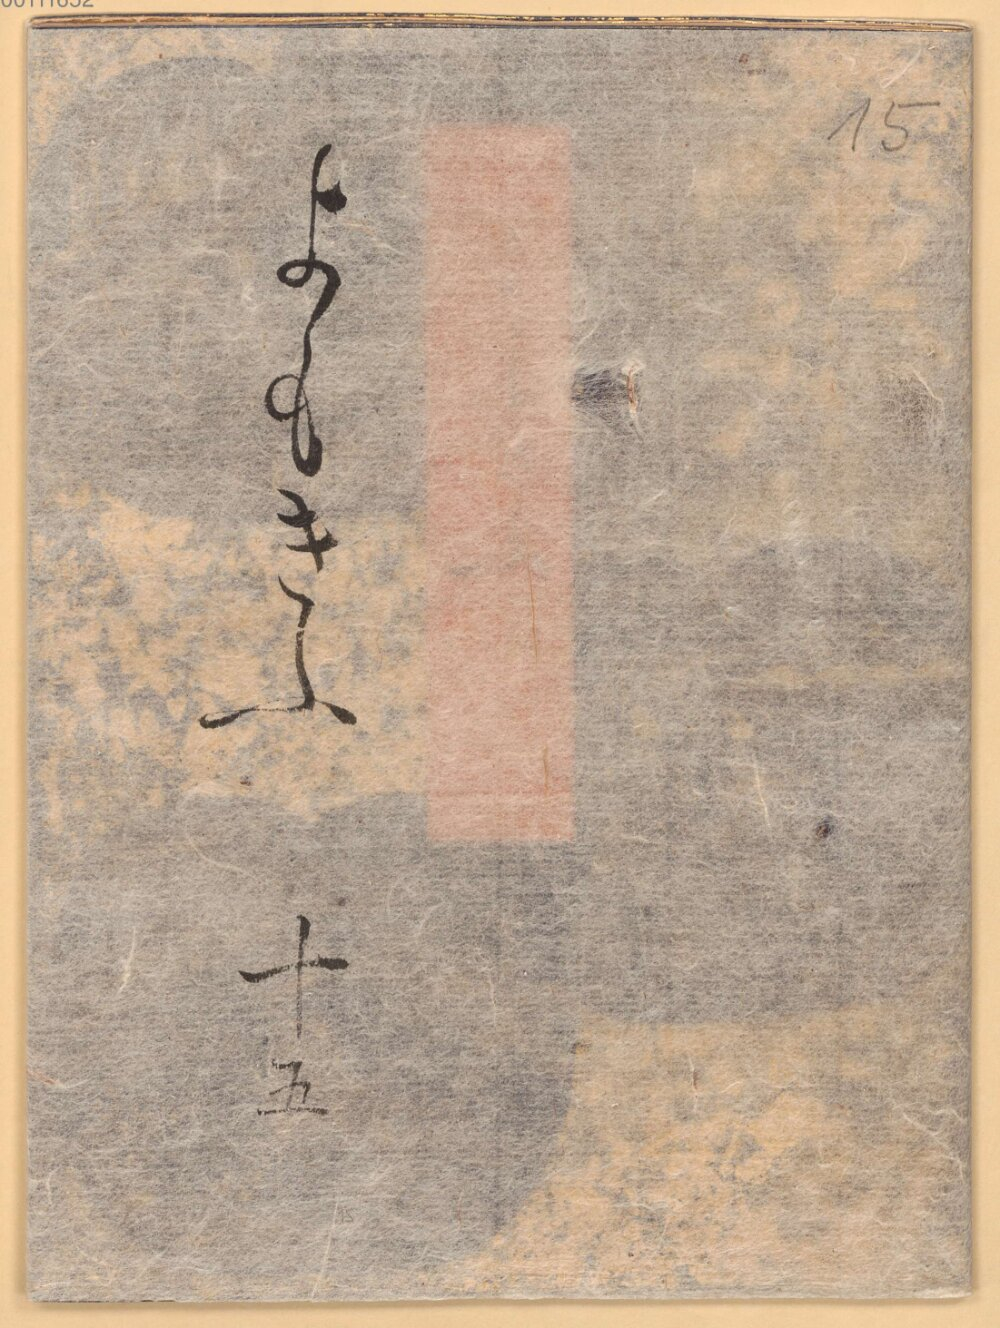 15
よもきふ 十五